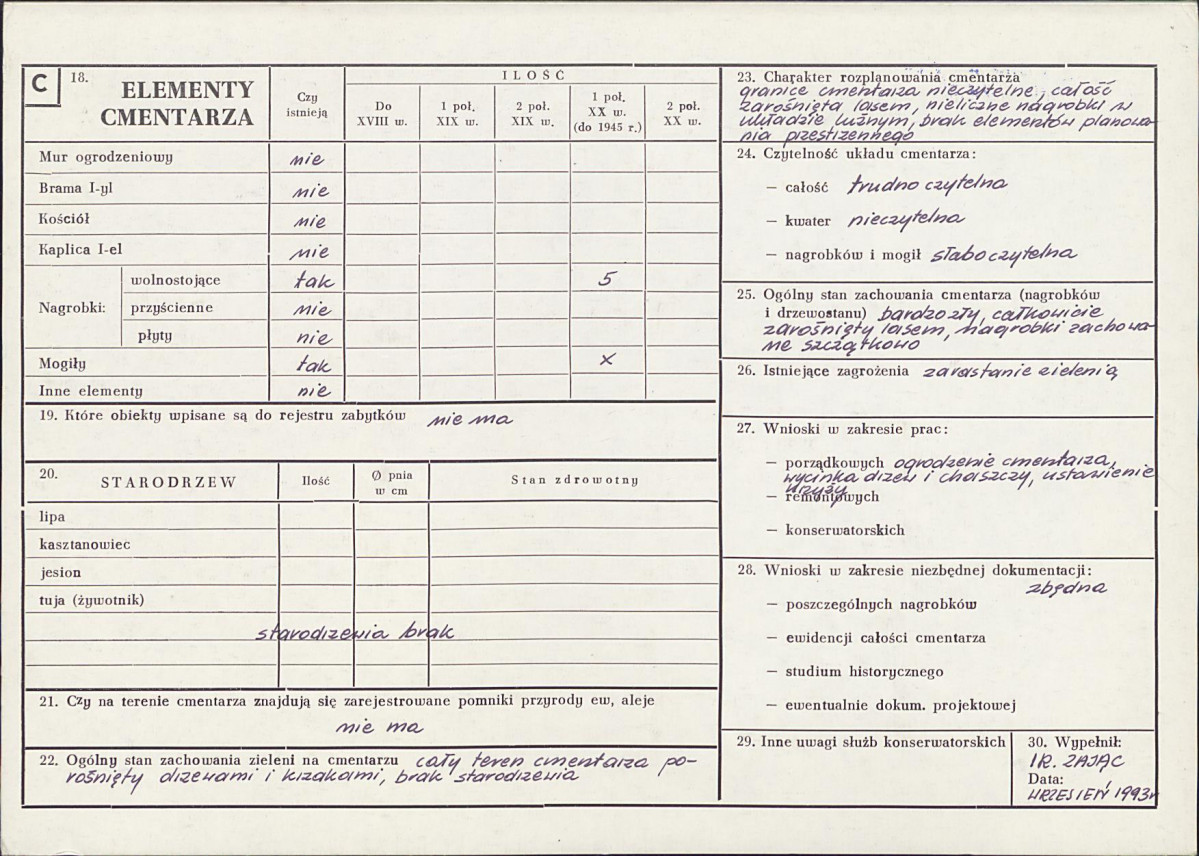 C 18. ELEMENTY
CMENTARZA
Czy
istnieją
ILOŚĆ
Do
XVIII w.
1 poł.
XIX w.
2 poł.
XIX w.
1 poł.
XX w.
(do 1945 r.)
2 poł.
XX w.
Mur ogrodzeniowy nie
Brama I-yl nie
Kościół nie
Kaplica I-el nie
Nagrobki:
wolnostojące tak 5
przyścienne nie
płyty nie
Mogiły tak x
Inne elementy nie
19. Które obiekty wpisane są do rejestru zabytków nie ma
20. STARODRZEW
Ilość
Ø pnia
w cm
Stan zdrowotny
lipa
kasztanowiec
jesion
tuja (żywotnik)
starodrzewia brak
21. Czy na terenie cmentarza znajdują się zarejestrowane pomniki przyrody ew, aleje
nie ma
22. Ogólny stan zachowania zieleni na cmentarzu cały teren cmentarza po-
rośnięty drzewami i krzakami, brak starodrzewia
23. Charakter rozplanowania cmentarza
granice cmentarza nieczytelne, całość
zarośnięta lasem, nieliczne nagrobki w
układzie luźnym, brak elementów planowa-
nia przestrzennego
24. Czytelność układu cmentarza:
— całość trudno czytelna
— kwater nieczytelna
— nagrobków i mogił słabo czytelna
25. Ogólny stan zachowania cmentarza (nagrobków
i drzewostanu) bardzo zły, całkowicie
zarośnięty lasem, nagrobki zachowa-
ne szczątkowo
26. Istniejące zagrożenia zarastanie zielenią
27. Wnioski w zakresie prac:
— porządkowych ogrodzenie cmentarza,
wycinka drzew i chaszczy, ustawienie
krzyży
— remontowych
— konserwatorskich
28. Wnioski w zakresie niezbędnej dokumentacji:
zbędna
— poszczególnych nagrobków
— ewidencji całości cmentarza
— studium historycznego
— ewentualnie dokum. projektowej
29. Inne uwagi służb konserwatorskich
30. Wypełnił:
IR. ZAJĄC
Data:
WRZESIEŃ 1993r